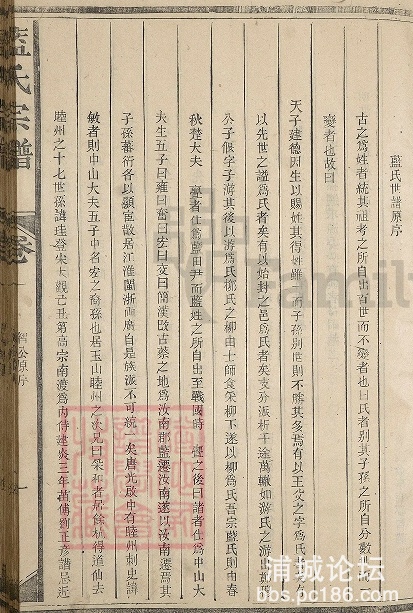 藍氏世譜原序
古之爲姓者統其祖考之所自出百世而不變者也曰氏者別其子孫之所自分數世
變者也故曰
天子建德因生以賜姓其得姓雖一而子孫別世則不勝其多焉有以王父之字爲氏者
以先世之諡爲氏者矣有以始封之邑爲氏者矣支分派析千途萬轍如游氏之游出鄭
公子偃字子游其後以游爲氏柳氏之柳由士師食采柳下遂以柳爲氏吾宗藍氏則由春
秋楚大夫 亹者仕爲藍田尹而藍姓之所自出至戰國時 亹之後曰諸者仕爲中山大
夫生五子曰雍曰奮曰宏曰文曰簡漢改古蔡之地爲汝南郡藍遷汝南遂以汝南爲其
子孫蕃衍各以顯宦散居江淮閩浙兩廣自是族派不可統一矣唐光啟中有睦州刺史諱
敏者則中山大夫五子中名宏之裔孫也居玉山睦州之次兄曰采和者居餘杭得道仙去
睦州之十七世孫諱奎登宋大觀己丑第高宗南渡爲內侍建炎三年苗傅劉正彥謀爲逆
藍氏宗譜
卷一
舊公原序
浦城论坛
bbs.pc186.com